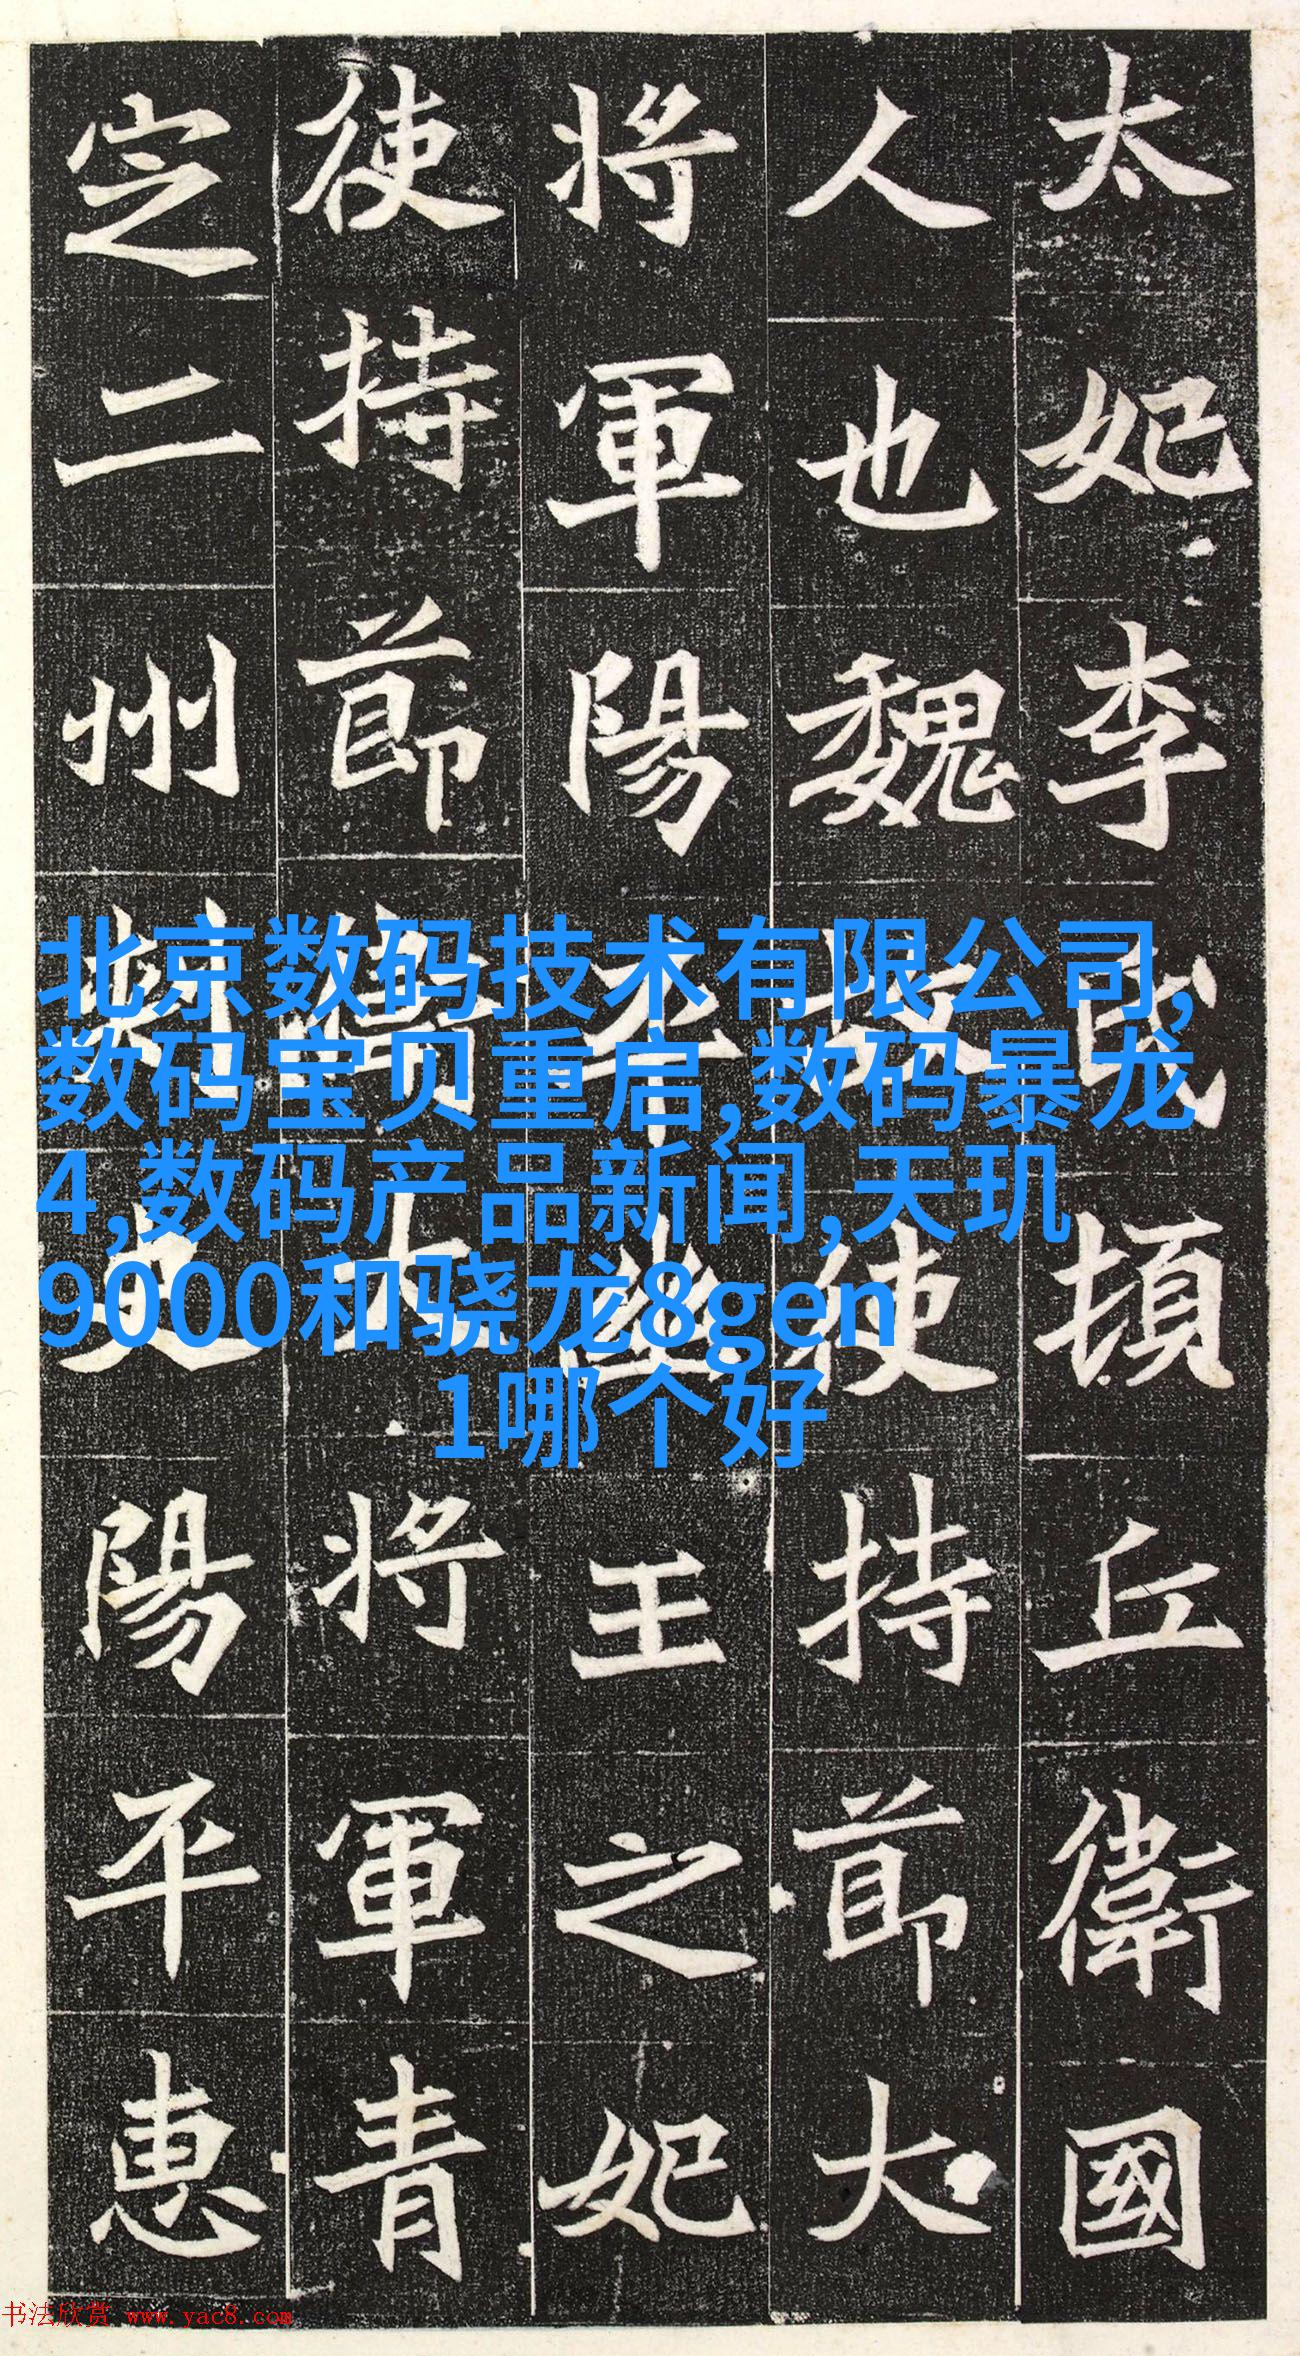 太妃李氏頓丘衛國
人也魏故使持節大
將軍陽平幽王之妃
使持節衛大將軍青
定二州刺史陽平惠
北京数码技术有限公司,
数码宝贝重启,数码暴龙
4,数码产品新闻,天玑
9000和骁龙8gen
1哪个好
书法欣赏 www.yac8.com